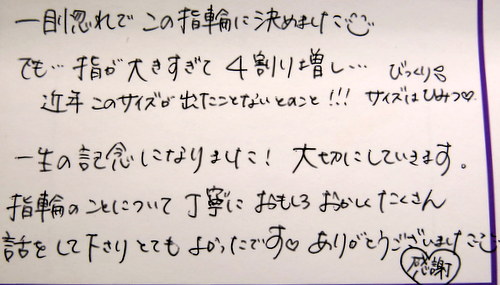 一目惚れで この指輪に決めました
でも… 指が大きすぎて 4割り増し… びっくり
近年 このサイズが出たことないとのこと!!! サイズはひみつ♡
一生の記念になりました! 大切にしていきます。
指輪のことについて 丁寧に おもしろ おかしく たくさん
話をして下さり とても よかったです♡ ありがとうございました
感謝